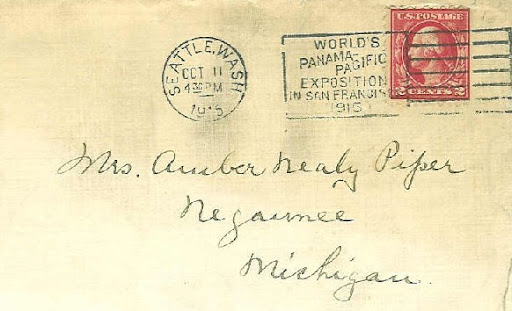 SEATTLE, WASH
OCT 11
4 30 PM
1915
WORLD'S
PANAMA-
PACIFIC
EXPOSITION
IN SAN FRANCISCO
1915
U.S. POSTAGE
2 CENTS 2
Mrs. Amber Nealy Piper
Negaunee
Michigan.